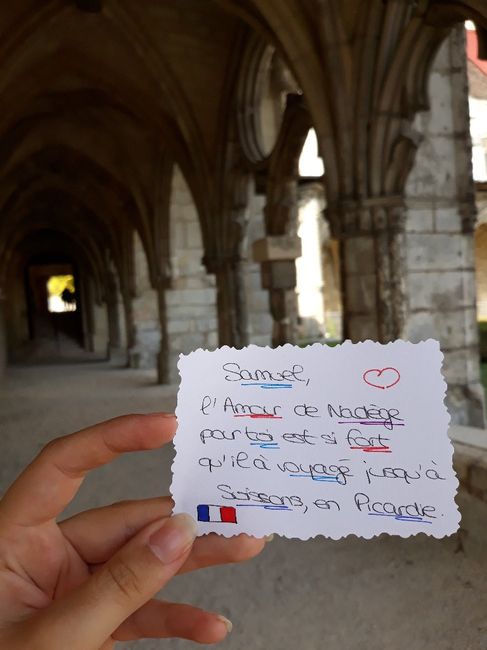 Samuel,
l'Amour de Nadège
pour toi est si fort
qu'il à voyagé jusqu'à
Soissons, en Picardie.